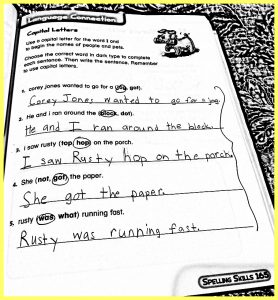 Language Connection
Capital Letters
Use a capital letter for the word I and
to begin the names of people and pets.
Choose the correct word in dark type to complete
each sentence. Then write the sentence. Remember
to use capital letters.
1. corey jones wanted to go for a (jog, got).
Corey Jones wanted to go for a jog.
2. He and i ran around the (block, dot).
He and I ran around the block.
3. i saw rusty (top, hop) on the porch.
I saw Rusty hop on the porch.
4. She (not, got) the paper.
She got the paper.
5. rusty (was, what) running fast.
Rusty was running fast.
SPELLING SKILLS 165